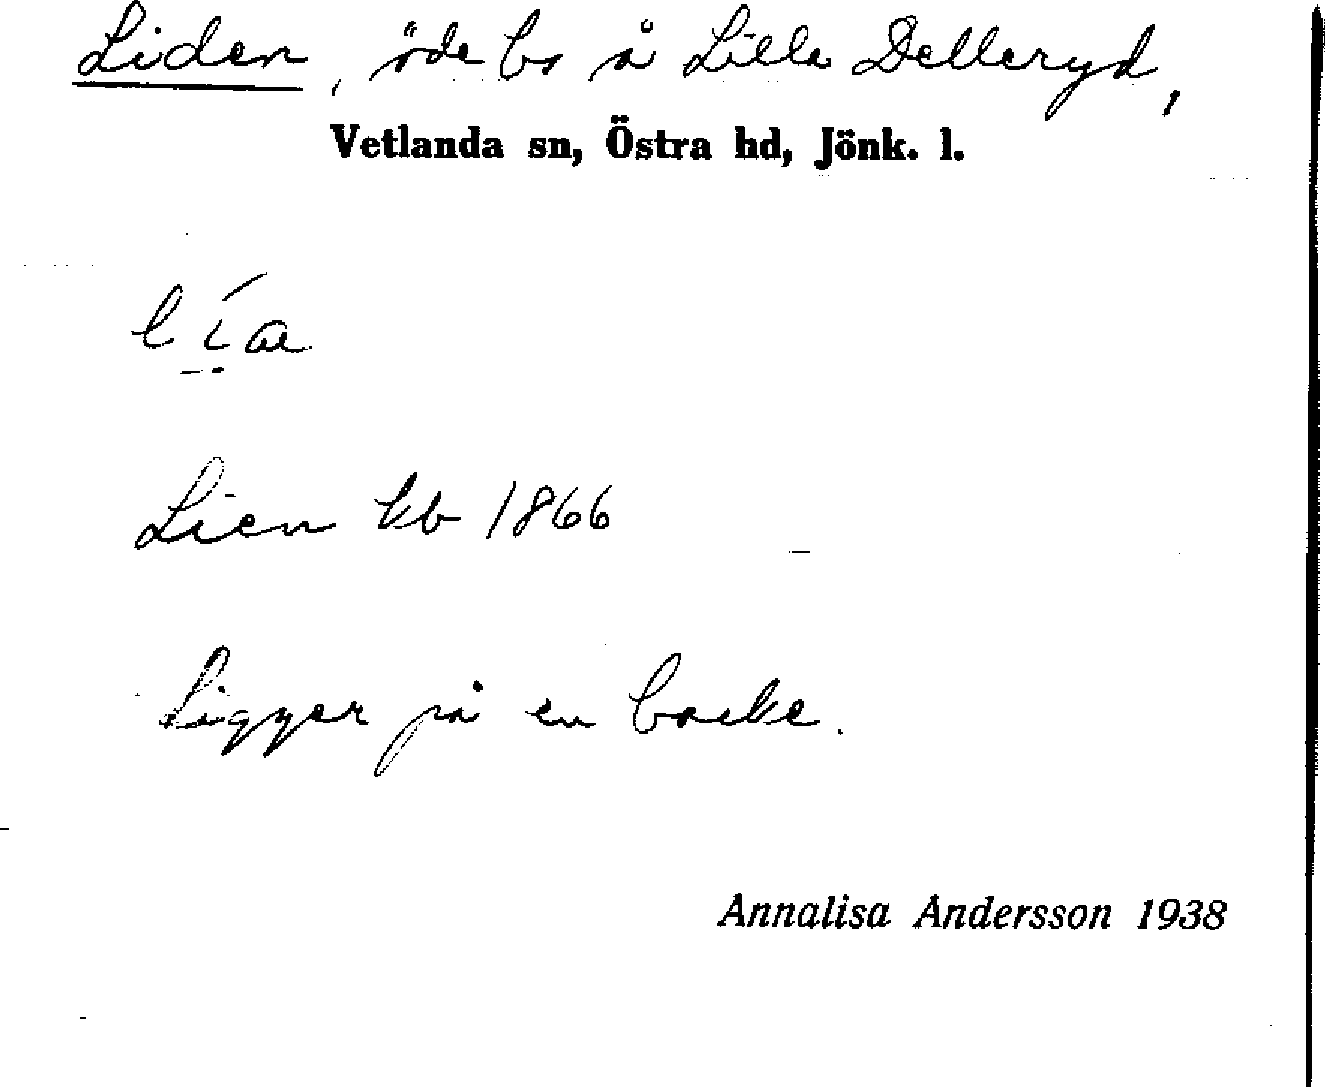 Liden, öde bs å Lilla Delleryd,
Vetlanda sn, Östra hd, Jönk. l.
lía
Lien kb 1866
Ligger på en backe.
Annalisa Andersson 1938